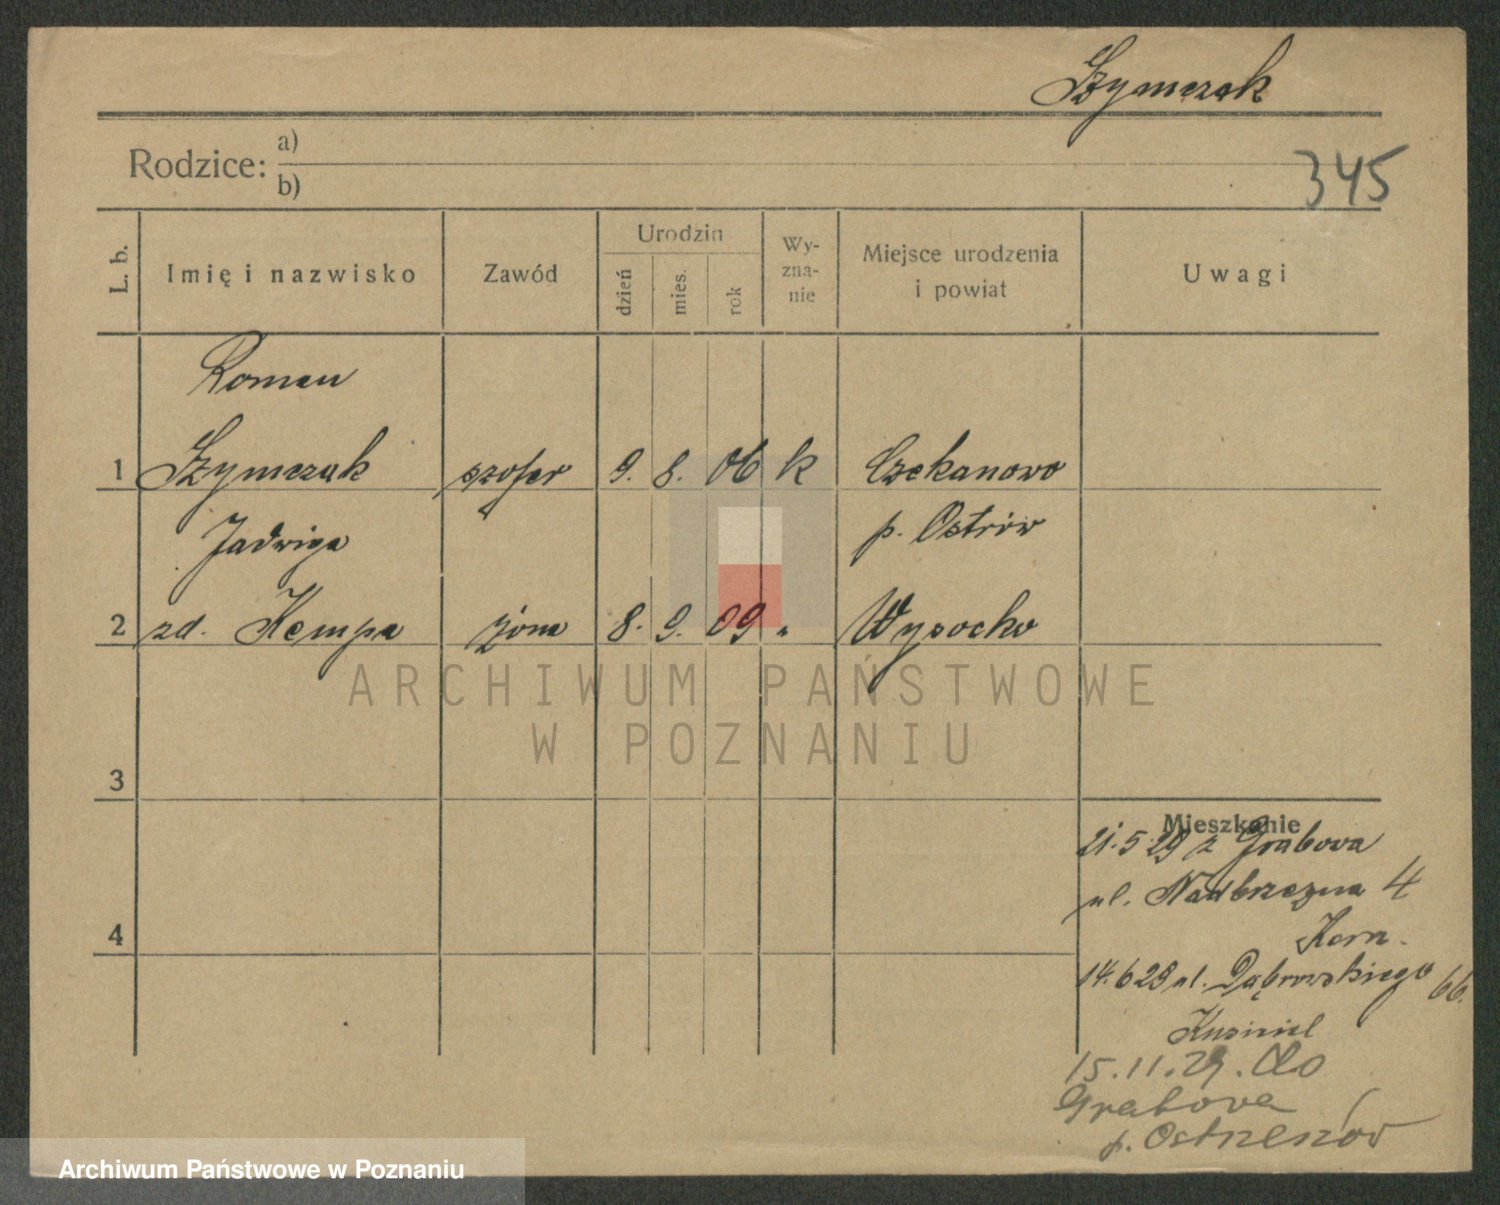 Szymczak
Rodzice: a)
b)
345
L. b.
Imię i nazwisko
Zawód
Urodzin
dzień
mies.
rok
Wy-
zna-
nie
Miejsce urodzenia
i powiat
Uwagi
Roman
1 Szymczak szofer 9. 8. 06 k Czekanowo
Jadwiga p. Ostrów
2 zd. Kempa żona 8. 9. 09 " Wysocko
ARCHIWUM PAŃSTWOWE
W POZNANIU
3
Mieszkanie
21.5 29 z Grabowa
ul. Nadbrzeżna 4
4
14.6 29 ul. Dąbrowskiego 66.
15.11.29. do
Grabowa
p. Ostrzeszów
Archiwum Państwowe w Poznaniu